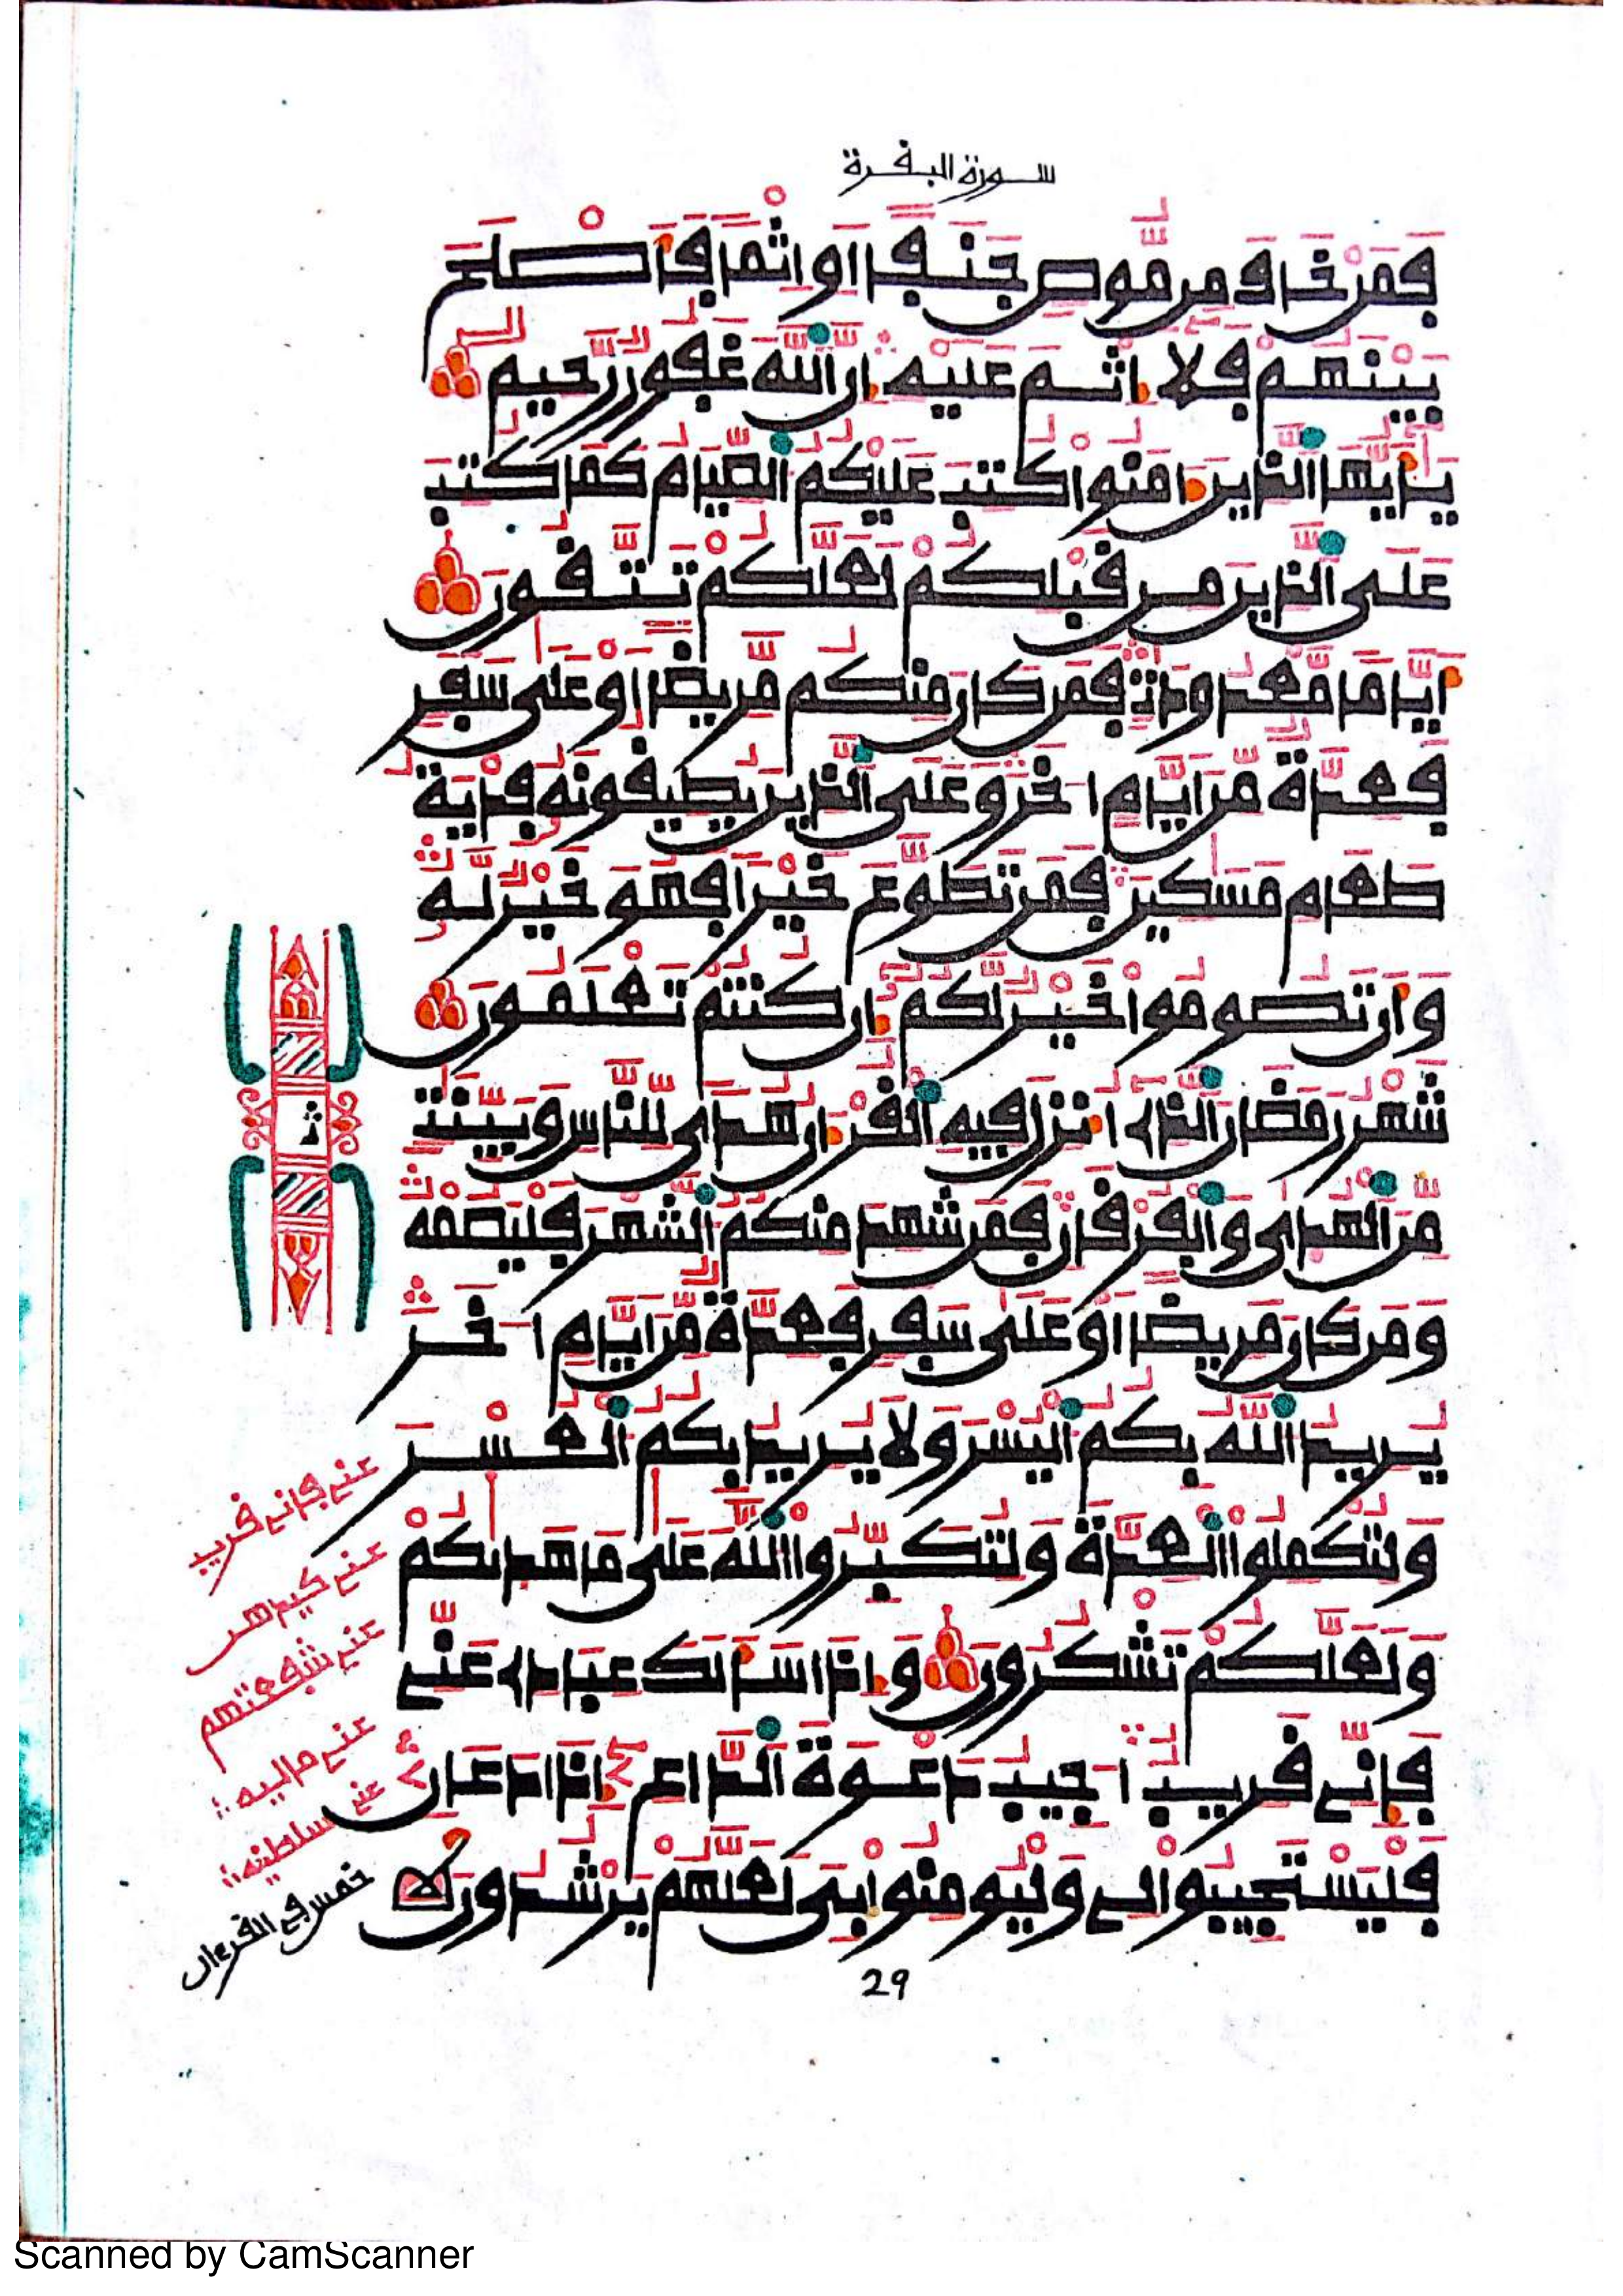 سورة البقرة
فمن خاف من موص جنفا او اثما فاصلح
بينهم فلا اثم عليه ان الله غفور رحيم
يايها الذين امنوا كتب عليكم الصيام كما كتب
على الذين من قبلكم لعلكم تتقون
اياما معدودات فمن كان منكم مريضا او على سفر
فعدة من ايام اخر وعلى الذين يطيقونه فدية
طعام مسكين فمن تطوع خيرا فهو خير له
وان تصوموا خير لكم ان كنتم تعلمون
شهر رمضان الذي انزل فيه القران هدى للناس وبينت
من الهدى والفرقان فمن شهد منكم الشهر فليصمه
ومن كان مريضا او على سفر فعدة من ايام اخر
يريد الله بكم اليسر ولا يريد بكم العسر
ولتكملوا العدة ولتكبروا الله على ما هديكم
ولعلكم تشكرون واذا سالك عبادي عني
فاني قريب اجيب دعوة الداع اذا دعان
فليستجيبوا لي وليومنوا بي لعلهم يرشدون
ث
عني فاني قريب
عني ماليه
عني سلطنيه
خمس في القرءان
29
Scanned by CamScanner